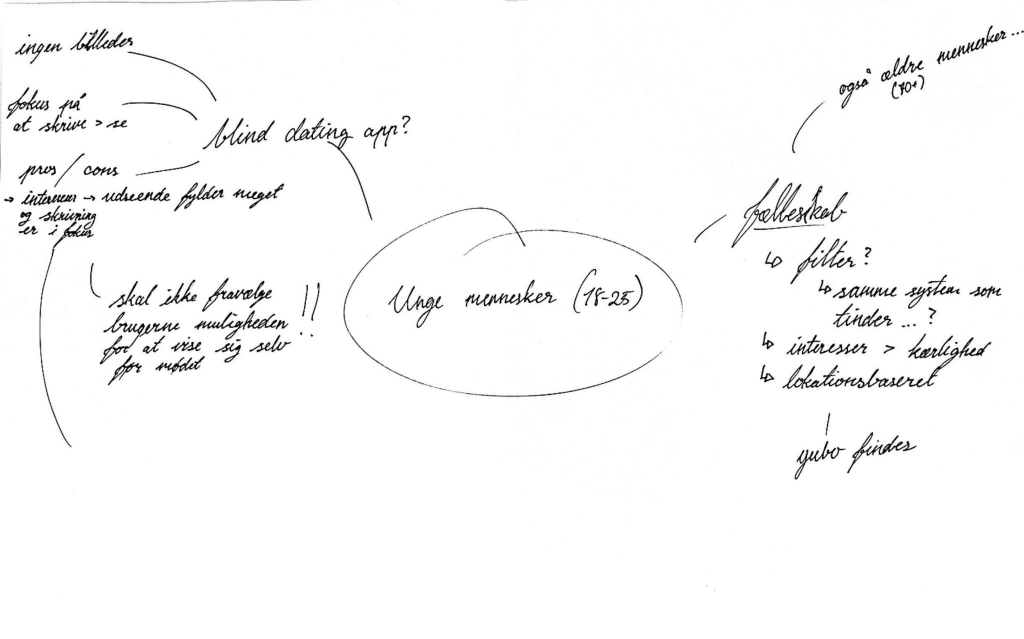 ingen billeder
fokus på
at skrive > se
blind dating app?
pros / cons
→ interesser → udseende fylder meget
og skrivning
er i fokus
skal ikke fravælge
brugerne muligheden !!
for at vise sig selv
før mødet
Unge mennesker (18-25)
også ældre mennesker...
(70+)
fællesskab
↳ filter?
↳ samme system som
tinder ...?
↳ interesser > kærlighed
↳ lokationsbaseret
yubo findes